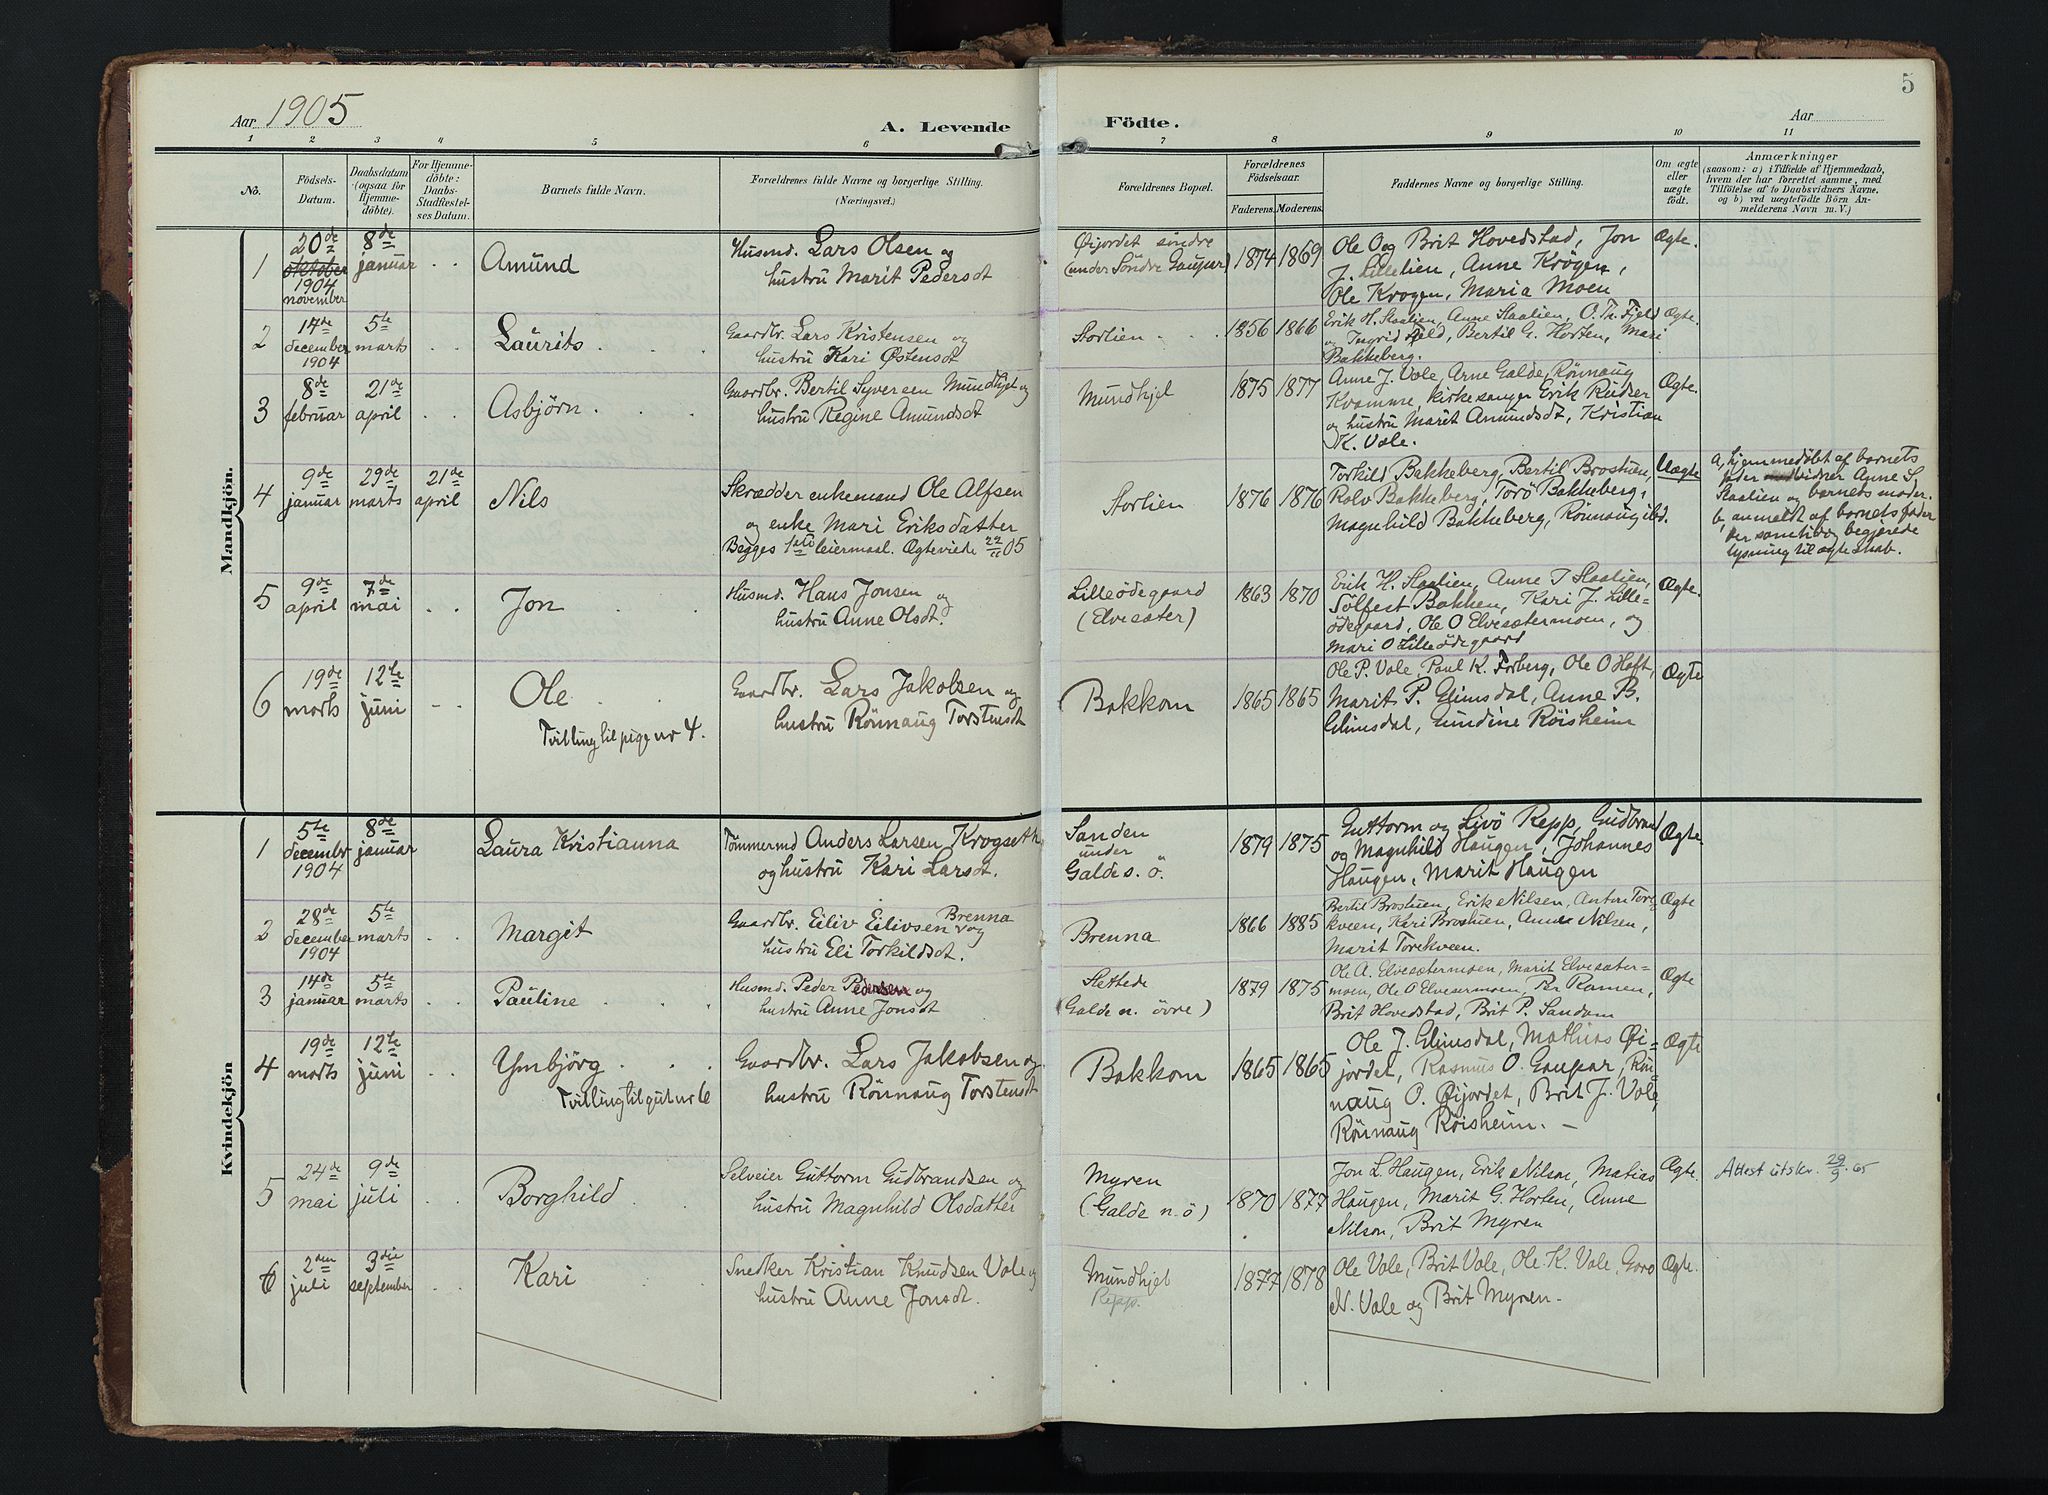 5
Aar 1905
A. Levende Födte.
Aar
1 2 3 4 5 6 7 8 9 10 11
No.
Födsels-Datum.
Daabsdatum (ogsaa for Hjemme-döbte).
For Hjemme-döbte: Daabs-Stadfæstel-ses Datum.
Barnets fulde Navn.
Forældrenes fulde Navne og borgerlige Stilling. (Næringsvei.)
Forældrenes Bopæl.
Forældrenes Födselsaar.
Faderens. Moderens.
Faddernes Navne og borgerlige Stilling.
Om ægte eller uægte födt.
Anmærkninger
(saasom: a) i Tilfælde af Hjemmedaab, hvem der har forrettet samme, med Tilföielse af to Daabsvidners Navne, og b) ved uægtefödte Börn An-melderens Navn m. V.)
Mandkjön.
1
20de oktober 1904 november
8de januar
Amund
Husmd. Lars Olsen og
hustru Marit Pedersdt
Øijordet søndre
(under Söndre Gaupar)
1874 1869
Ole O og Brit Hovedstad, Jon
J. Lillelien, Anne Krögen,
Ole Krogen, Maria Moen
Ægte.
2
14de december 1904
5te marts
Laurits
Gaardbr. Lars Kristensen og
hustru Kari Østensdt
Storlien
1856 1866
Erik H. Staalien, Anne Staalien, O. Th. Fjeld
og Ingrid Fjeld, Bertil G. Horten, Mari
Bakkeberg.
Ægte.
3
8de februar
21de april
Asbjörn
Gaardbr. Bertil Syversen Mundhjel og
hustru Regine Amundsdt
Mundhjel
1875 1877
Anne J. Vole, Arne Galde, Rönnaug
Kvamme, kirkesanger Erik Ruder
og hustru Marit Amundsdt, Kristian
K. Vole.
Ægte.
4
9de januar
29de marts
21de april
Nils
Skrædder enkemand Ole Alfsen
og enke Mari Eriksdatter
Begges 1ste leiermaal. Ægteviede 22/11 05
Storlien
1876 1876
Torkild Bakkeberg, Bertil Brostuen,
Rolv Bakkeberg, Torö Bakkeberg,
Magnhild Bakkeberg, Rönnaug ibd.
Uægte
a, hjemmedöbt af barnets
fader vidner Anne S.
Staalien og barnets moder.
b, anmeldt af barnets fader
der samtidig begjærede
lysning til ægteskab.
5
9de april
7de mai
Jon
Husmd. Hans Jonsen og
hustru Anne Olsdt.
Lilleödegaard
(Elvesæter)
1863 1870
Erik H. Staalien, Anne J Staalien,
Sölfest Bakken, Kari J. Lille=
ödegaard, Ole O Elvesætermoen, og
Mari O Lilleödegaard
Ægte.
6
19de marts
12te juni
Ole
Tvilling til pige nr 4.
Gaardbr. Lars Jakobsen og
hustru Rönnaug Torstensdt
Bakkom
1865 1865
Ole P. Vole, Paul K. Forberg, Ole O Hoft,
Marit P. Glimsdal, Anne B.
Glimsdal, Gundine Röisheim
Ægte
Kvindekjön
1
5te decembr 1904
8de januar
Laura Kristianna
Tømmermd Anders Larsen Krogseth
og hustru Kari Larsdt.
Sanden
under
Galde s. ö.
1879 1875
Guttorm og Livö Repp, Gudbrand
og Magnhild Haugen, Johannes
Haugen, Marit Haugen
Ægte
2
28de december 1904
5te marts
Margit
Gaardbr. Eiliv Eilivsen Brenna og
hustru Eli Torkildsdt.
Brenna
1866 1885
Bertil Brostuen, Erik Nilsen, Anton Tor=
kveen, Kari Brostuen, Anne Nilsen,
Marit Torekveen.
Ægte
3
14de januar
5te marts
Pauline
Husmd. Peder Pedersen og
hustru Anne Jonsdt
Slettede
(Galde n. övre)
1879 1875
Ole A. Elvesætermoen, Marit Elvesæter=
moen, Ole O Elvesermoen, Per Ramen,
Brit Hovedstad, Brit P. Sandom
Ægte
4
19de marts
12te juni
Ymbjörg
Tvilling til gut nr 6
Gaardbr. Lars Jakobsen og
hustru Rönnaug Torstensdt
Bakkom
1865 1865
Ole J. Glimsdal, Mathias Øi=
jordet, Rasmus O. Gaupar, Rön=
naug O. Øijordet, Brit J. Vole,
Rönnaug Röisheim.
Ægte
5
24de mai
9de juli
Borghild
Selveier Guttorm Gudbrandsen og
hustru Magnhild Olsdatter
Myren
(Galde n. ö)
1870 1877
Jon L Haugen, Erik Nilson, Matias
Haugen, Marit G. Horten, Anne
Nilson, Brit Myren
Ægte.
Attest utskr. 29/9.65
6
2den juli
3die september
Kari
Snedker Kristian Knudsen Vole og
hustru Anne Jonsdt.
Mundhjel
Repp.
1877 1878
Ole Vole, Brit Vole, Ole K. Vole, Goro
N. Vole og Brit Myren.
Ægte.